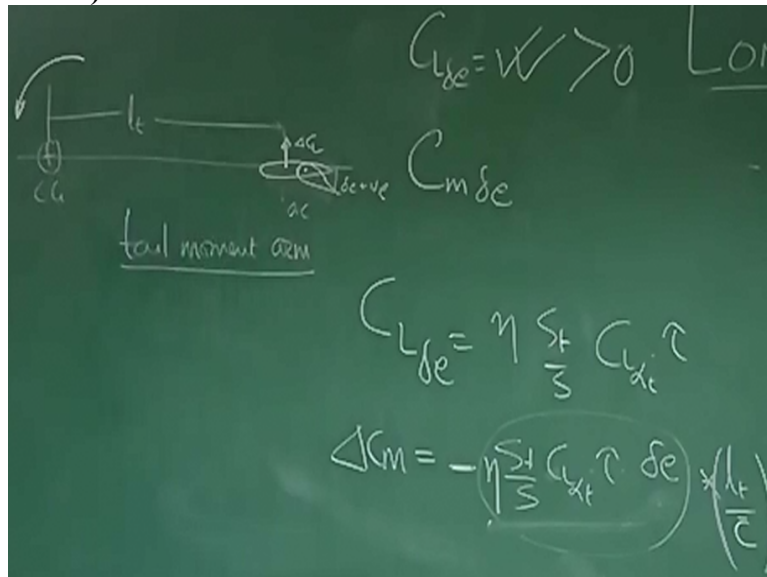 C_{L_{δe}} = W > 0 Lon
l_t
CG
ΔC_L
δe +ve
ac
C_{m δe}
tail moment arm
C_{L_{δe}} = η \frac{S_t}{S} C_{L_{α_t}} τ
ΔC_m = - η \frac{S_t}{S} C_{L_{α_t}} τ δe * ( \frac{l_t}{\bar{c}} )